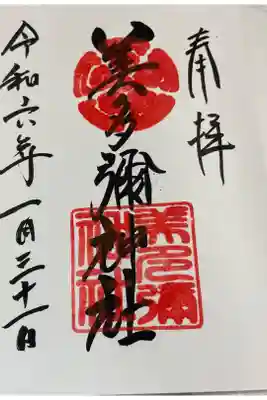 奉拝
美多彌神社
令和六年一月三十一日
美多彌
神社